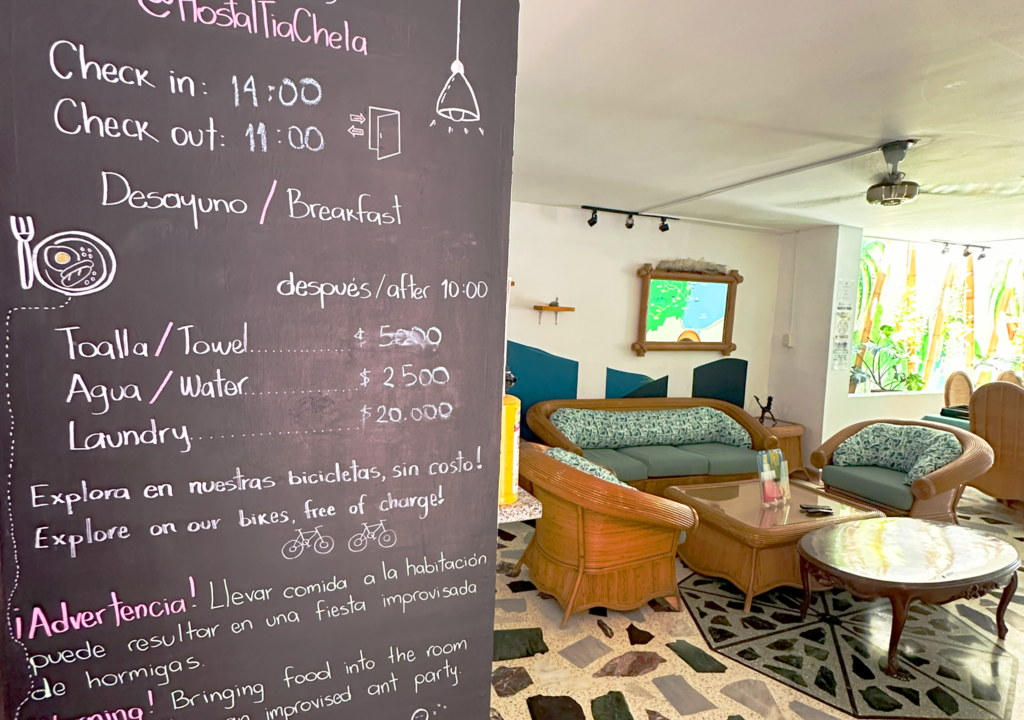 @HostalTiaChela
Check in: 14:00
Check out: 11:00
Desayuno / Breakfast
después/after 10:00
Toalla/Towel.................$ 5000
Agua/Water.................$ 2500
Laundry.................$20.000
Explora en nuestras bicicletas, sin costo!
Explore on our bikes, free of charge!
¡Advertencia! Llevar comida a la habitación
puede resultar en una fiesta improvisada
de hormigas.
Bringing food into the room
improvised ant party.